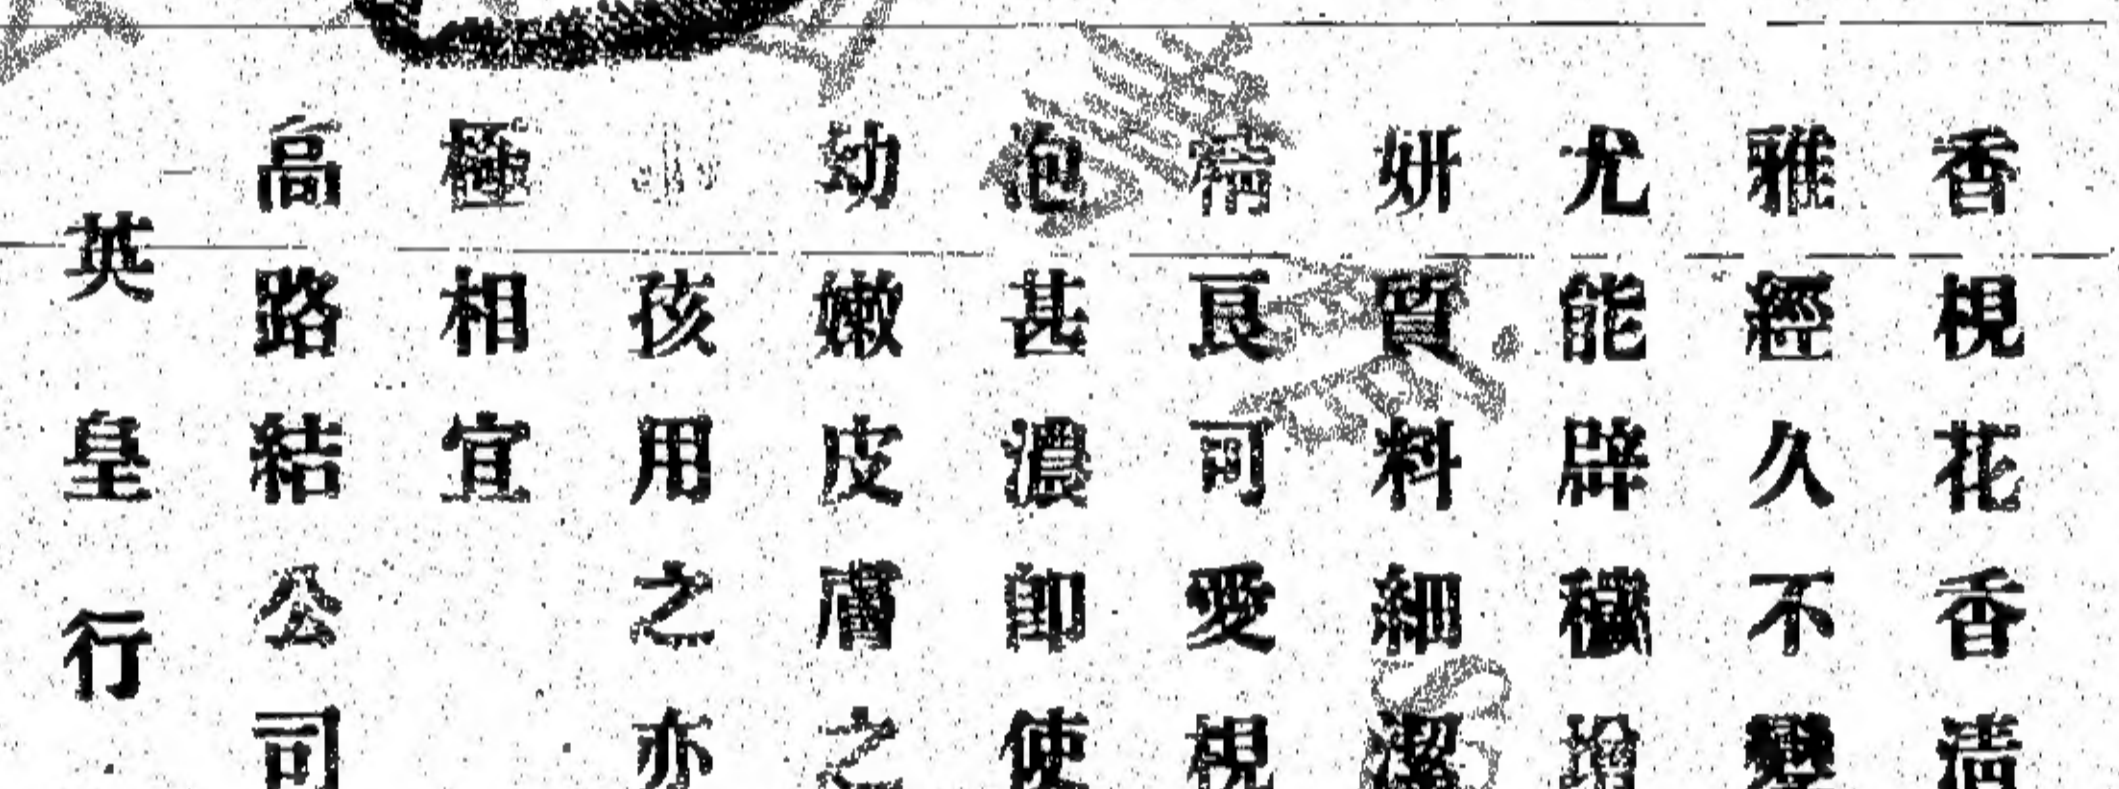 香梘花香清
雅經久不變
尤能辟穢增
妍質料細潔
精良可愛梘
泡甚濃卽使
幼嫩皮膚之
孩用之亦
極相宜
高路結公司
英皇行